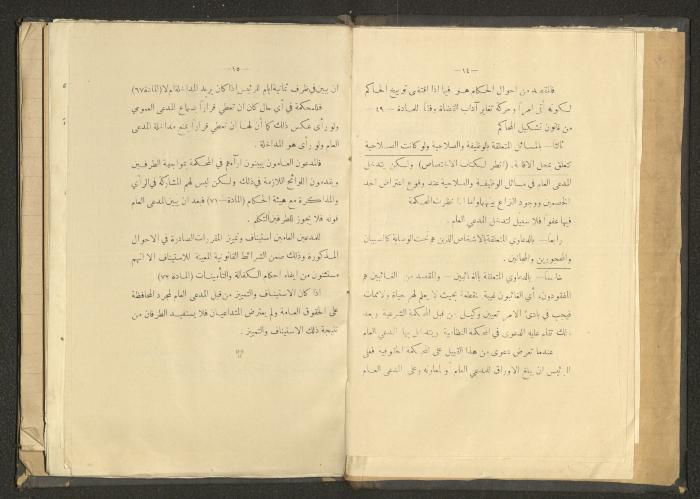 — ١٤ —
فالمقصد من احوال الحكام هو فيما اذا اقتضى توبيخ الحاكم
لكونه أتى امراً وحركة تغاير آداب القضاة وفقاً للمادة — ٤٩ —
من قانون تشكيل المحاكم
ثالثا — بالمسائل المتعلقة بالوظيفة والصلاحية ولو كانت الصلاحية
تتعلق بمحل الاقامة . (انظر لكتاب الاختصاص) ولكن يتدخل
المدعي العام في مسائل الوظيفة والصلاحية عند وقوع اعتراض احد
الخصمين ووجود النزاع بينهما واما اذا نظرت المحكمة
فيها عفواً فلا سبيل لتدخل المدعي العام .
رابعا — بالدعاوي المتعلقة بالاشخاص الذين هم تحت الوصاية كالصبيان
والمحجورين والمجانين .
خامساً — بالدعاوي المتعلقة بالغائبين — والقصد من الغائبين هم
المفقودون، أي الغائبون غيبة منقطعة بحيث لا يعلم لهم حياة ولا ممات
فيجب في بادئ الامر تعيين وكيل من قبل المحكمة الشرعية وبعد
ذلك تقام عليه الدعوى في المحكمة النظامية ويتداخل بها المدعي العام
عندما تعرض دعوى من هذا القبيل على المحكمة الحقوقية فعلى
الرئيس ان يبلغ الاوراق للمدعي العام أو لمعاونه وعلى المدعي العام
— ١٥ —
ان يبين في ظرف ثمانية ايام للرئيس اذا كان يريد المداخلة ام لا (المادة ٦٧)
فللمحكمة في أي حال كان ان تعطي قراراً بسماع المدعي العمومي
ولو رأى عكس ذلك كما أن لها ان تعطي قراراً بمنع مداخلة المدعي
العام ولو رأى هو المداخلة .
فالمدعون العامون يبينون آراءهم في المحكمة بمواجهة الطرفين
ويقدمون اللوائح اللازمة في ذلك ولكن ليس لهم المشاركة في الرأي
والمذاكرة مع هيئة الحكام (المادة — ٧١) فبعد ان يبين المدعي العام
قوله فلا يجوز للطرفين التكلم .
للمدعين العامين استيناف وتمييز المقررات الصادرة في الاحوال
المذكورة وذلك ضمن الشرائط القانونية المعينة للاستيناف الا انهم
مستثنون من ايفاء احكام الكفالة والتأمينات (المادة ٧٢)
اذا كان الاستيناف والتمييز من قبل المدعي العام لمجرد المحافظة
على الحقوق العامة ولم يعترض المتداعيان فلا يستفيد الطرفان من
نتيجة ذلك الاستيناف والتمييز .